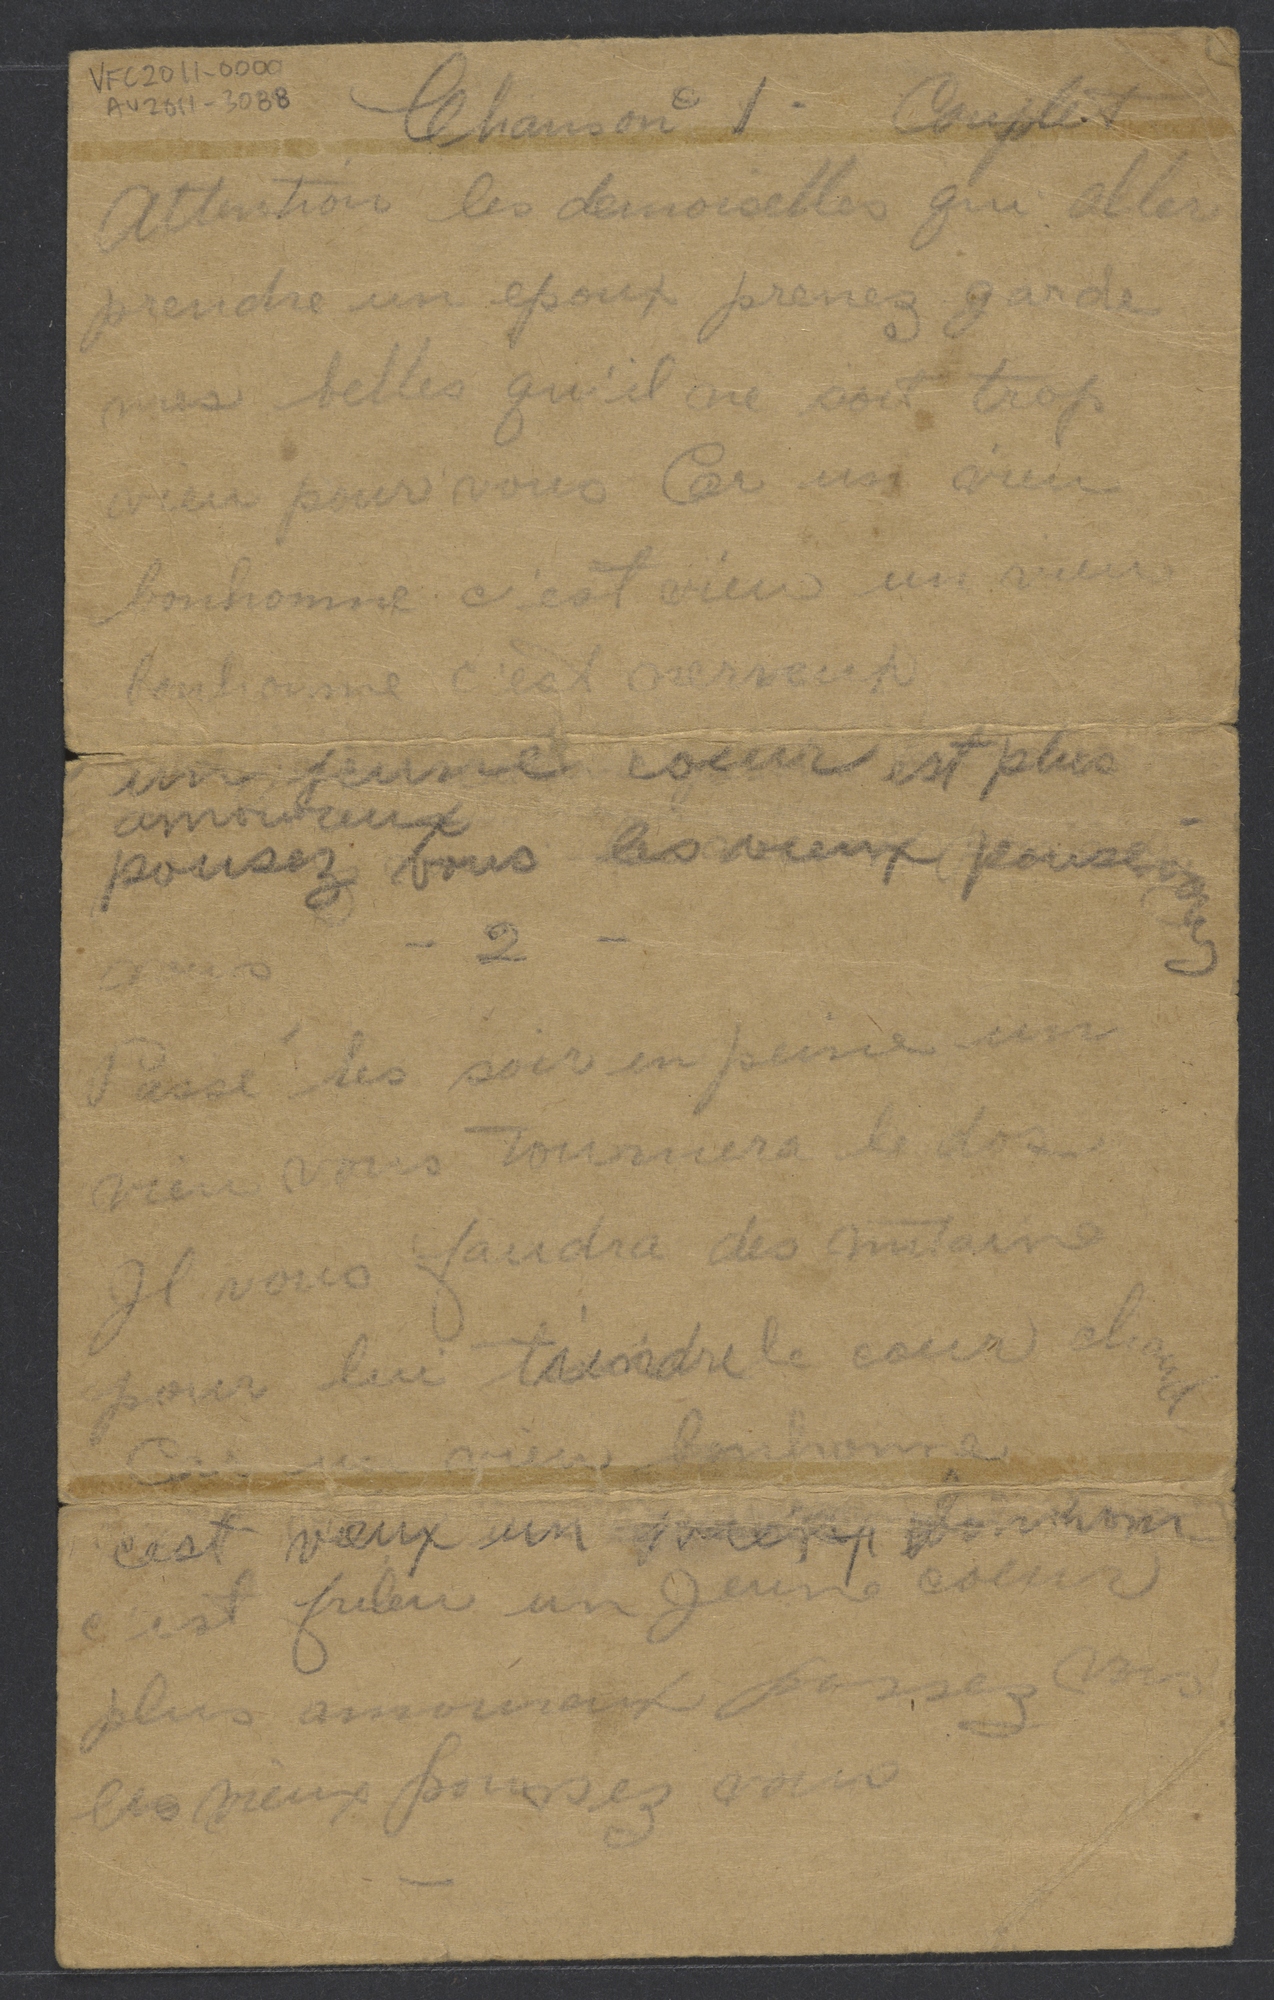 VFC2011-0000
AV2011-3088
Chanson 1er Couplet
Attention les demoiselles qui aller
prendre un epoux prenez garde
mes belles qu'il ne soit trop
vieu pour vous Car un vieu
bonhomme c'est vieu un vieu
bonhomme c'est nerveux
un jeune coeur est plus
amoureux
pousez vous les vieux pousez
vous - 2 -
Passé les soir en peine un
vieu vous tournera le dos
Il vous faudra des mitaine
pour lui teindre le cour chaud
Car un vieu bonhomme
c'est vieux un vieux bonhom
c'est frileu un Jeune coeur
plus amoureux poussez vous
les vieux poussez vous